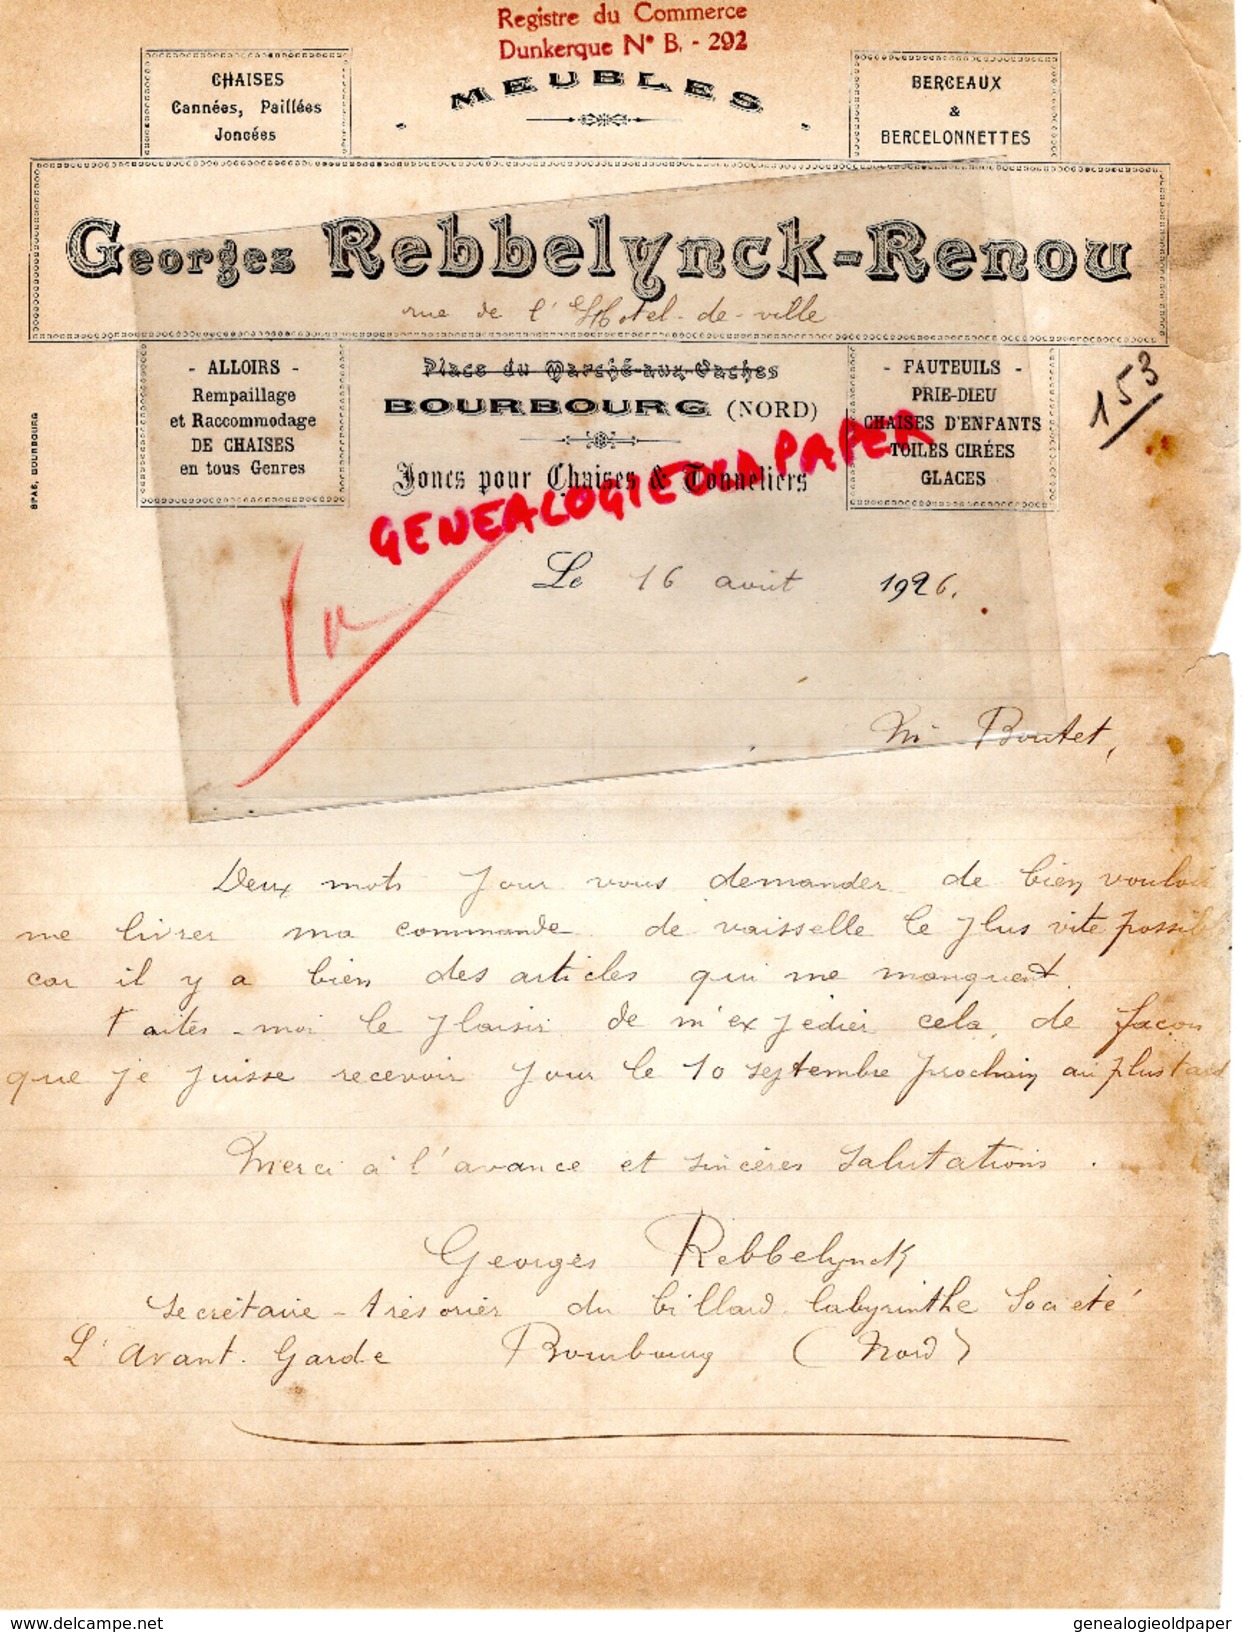 Registre du Commerce
Dunkerque N° B. - 292
MEUBLES
CHAISES
Cannées, Paillées
Joncées
BERCEAUX
&
BERCELONNETTES
Georges Rebbelynck-Renou
rue de l'Hotel-de-ville
- ALLOIRS -
Rempaillage
et Raccommodage
DE CHAISES
en tous Genres
Place du Marché-aux-Vaches
BOURBOURG (NORD)
Joncs pour Chaises & Tonneliers
- FAUTEUILS -
PRIE-DIEU
CHAISES D'ENFANTS
TOILES CIRÉES
GLACES
153
SPAS, BOURBOURG
GENEALOGIEOLDPAPER
Le 16 août 1926.
Mr Boutet,
Deux mots pour vous demander de bien vouloir
me livrer ma commande de vaisselle le plus vite possible
car il y a bien des articles qui me manquent.
Faites-moi le plaisir de m'expédier cela, de façon
que je puisse recevoir pour le 10 septembre prochain au plus tard
Merci à l'avance et sincères salutations.
Georges Rebbelynck
secrétaire-trésorier du billard labyrinthe Société
L'Avant. Garde Bourbourg (Nord)
www.delcampe.net
genealogieoldpaper